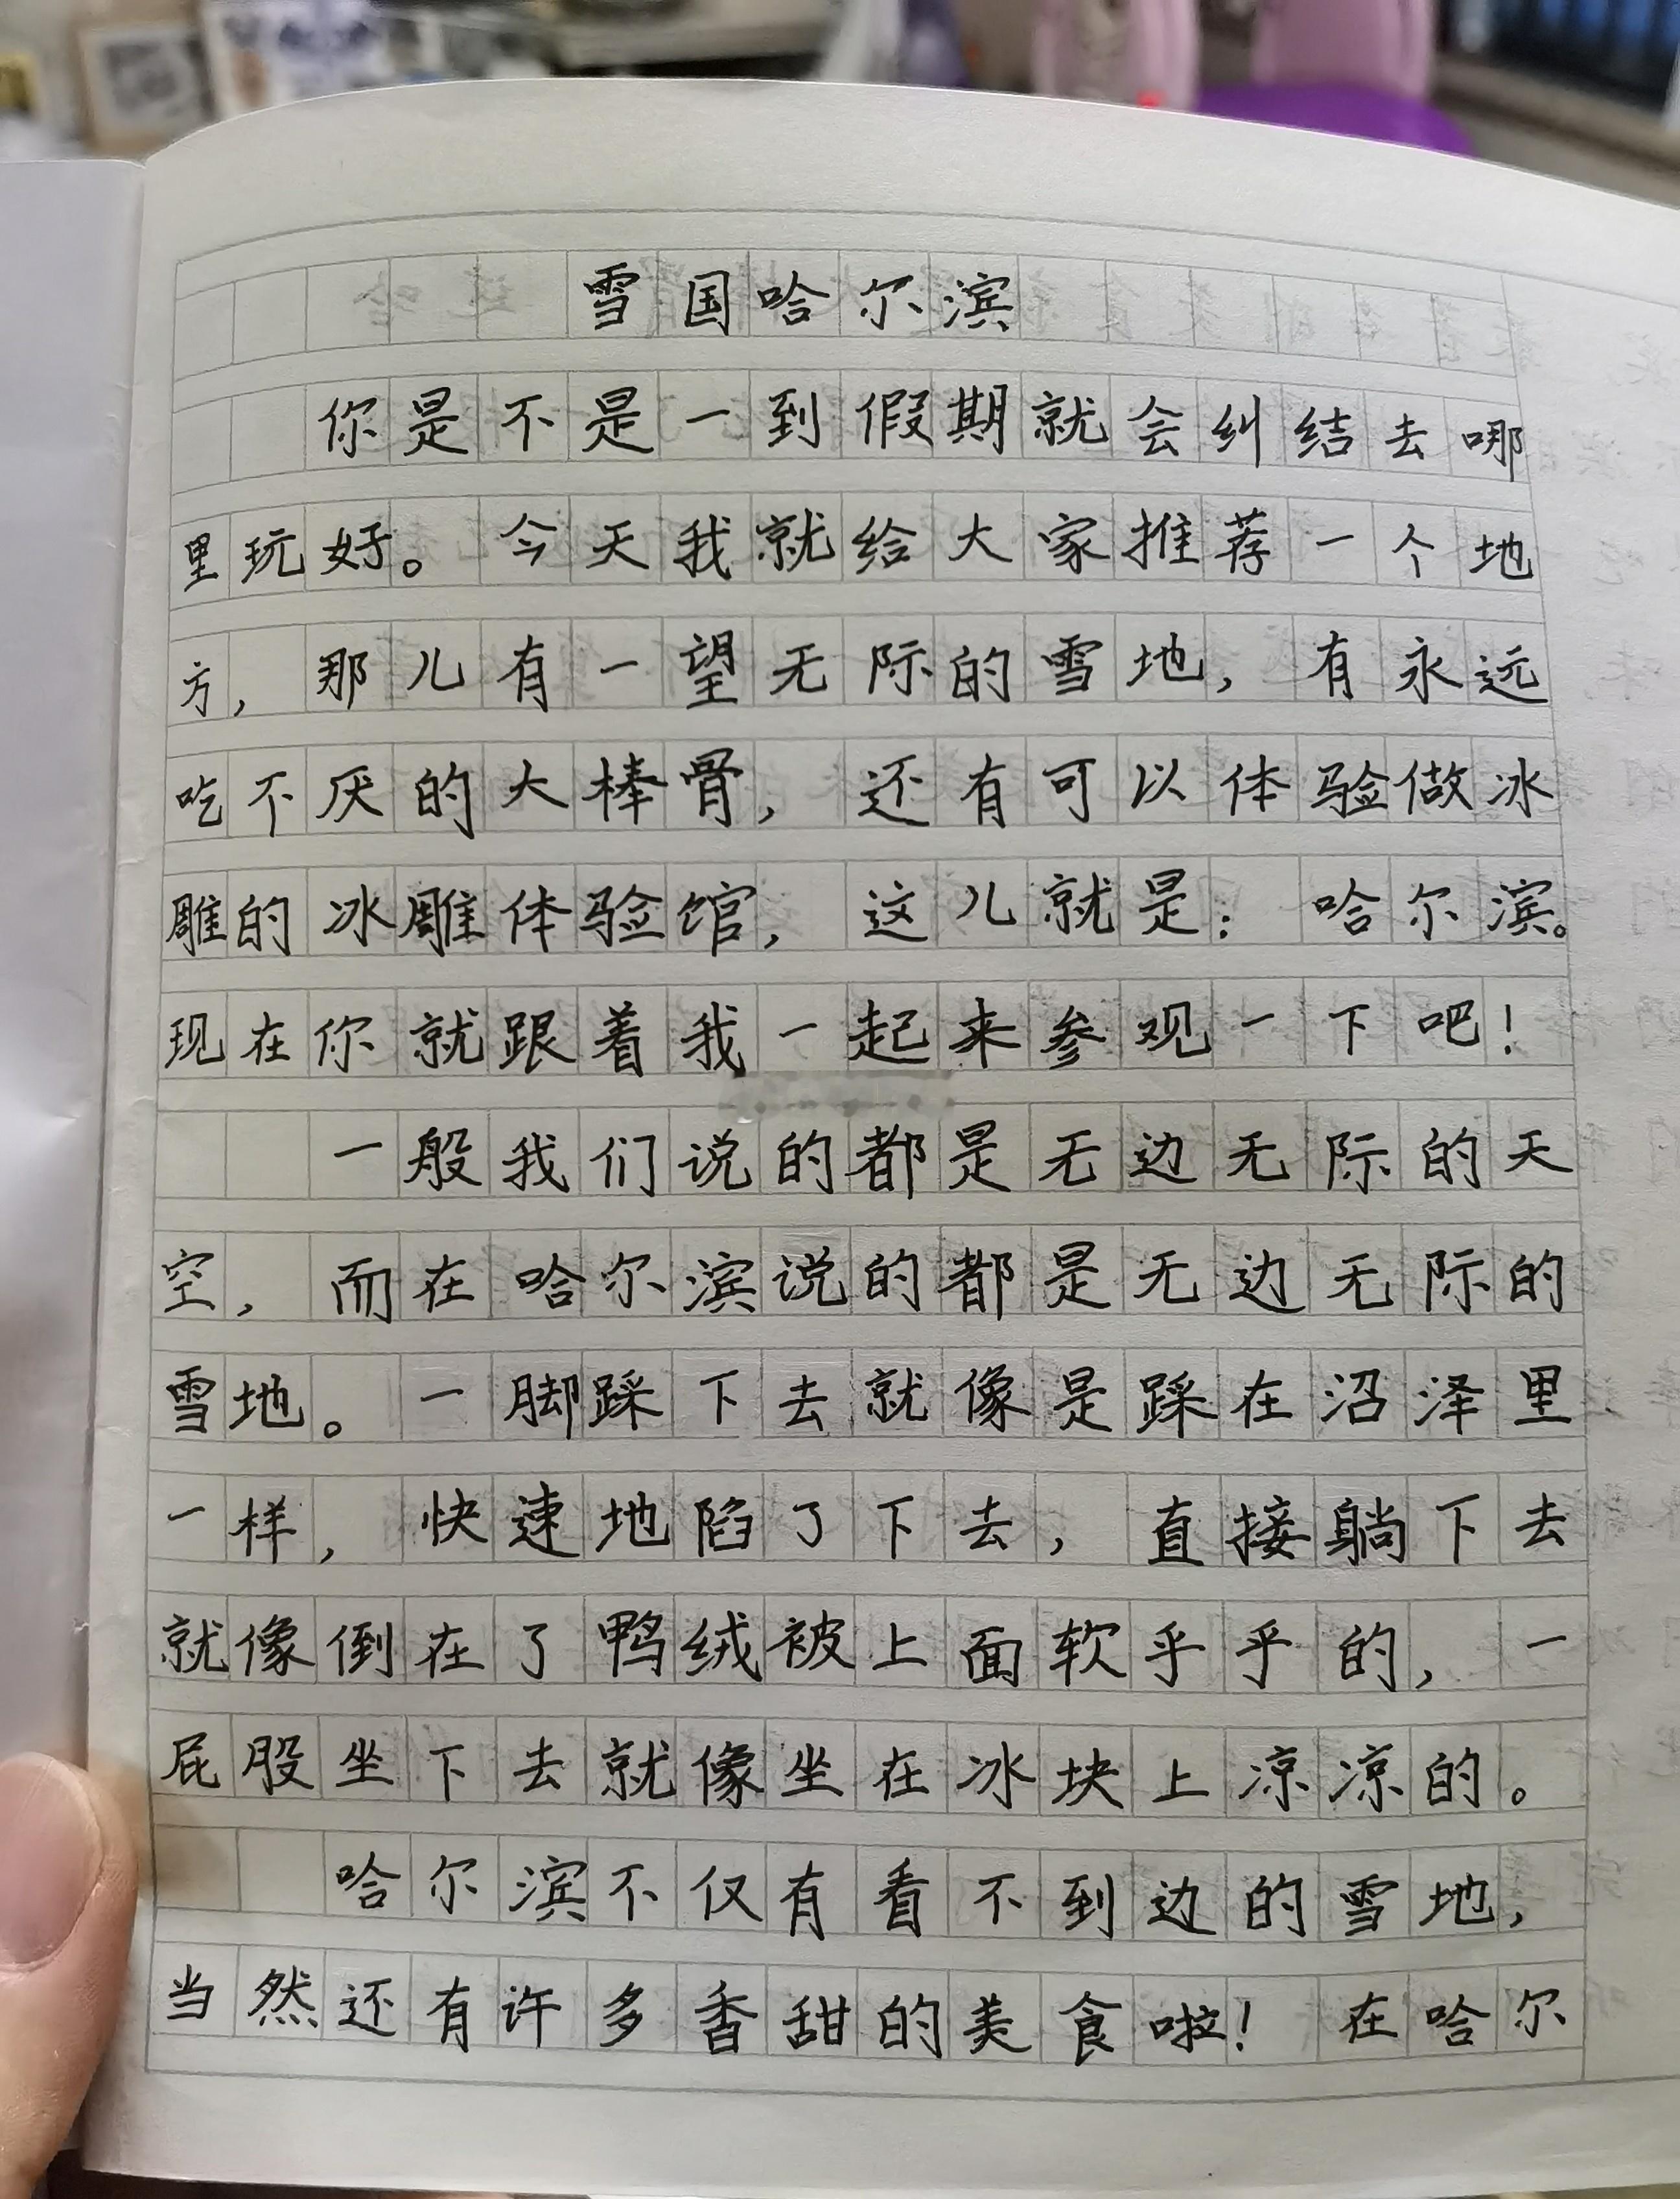 雪国哈尔滨
你是不是一到假期就会纠结去哪
里玩好。今天我就给大家推荐一个地
方，那儿有一望无际的雪地，有永远
吃不厌的大棒骨，还有可以体验做冰
雕的冰雕体验馆，这儿就是：哈尔滨。
现在你就跟着我一起来参观一下吧！
一般我们说的都是无边无际的天
空，而在哈尔滨说的都是无边无际的
雪地。一脚踩下去就像是踩在沼泽里
一样，快速地陷了下去，直接躺下去
就像倒在了鸭绒被上面软乎乎的，一
屁股坐下去就像坐在冰块上凉凉的。
哈尔滨不仅有看不到边的雪地，
当然还有许多香甜的美食啦！在哈尔